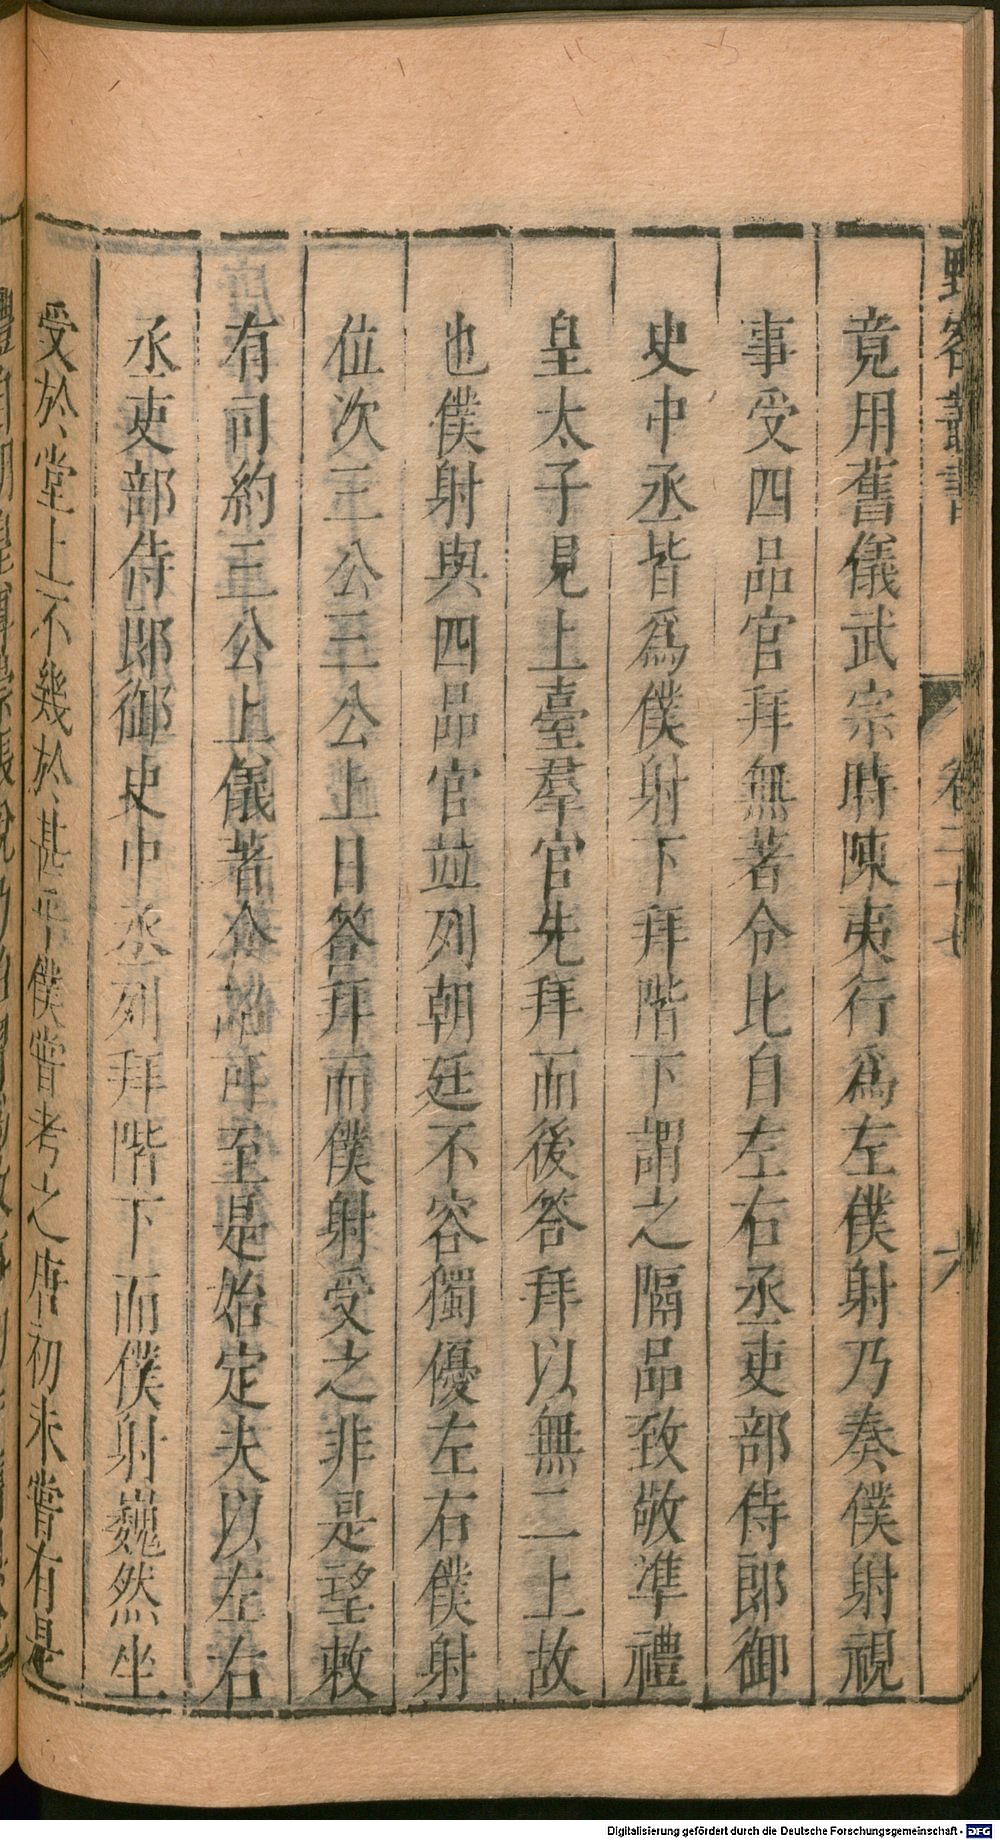 野客叢書
卷二十七
六
竟用舊儀武宗時陳夷行爲左僕射乃奏僕射視
事受四品官拜無著令比自左右丞吏部侍郎御
史中丞皆爲僕射下拜階下謂之隔品致敬準禮
皇太子見上臺羣官先拜而後答拜以無二上故
也僕射與四品官並列朝廷不容獨優左右僕射
位次三公三公上日答拜而僕射受之非是望敕
有司約三公上儀著令詔可至是始定夫以左右
丞吏部侍郎御史中丞列拜階下而僕射巍然坐
受於堂上不幾於甚乎僕嘗考之唐初未嘗有是
Digitalisierung gefördert durch die Deutsche Forschungsgemeinschaft - DFG